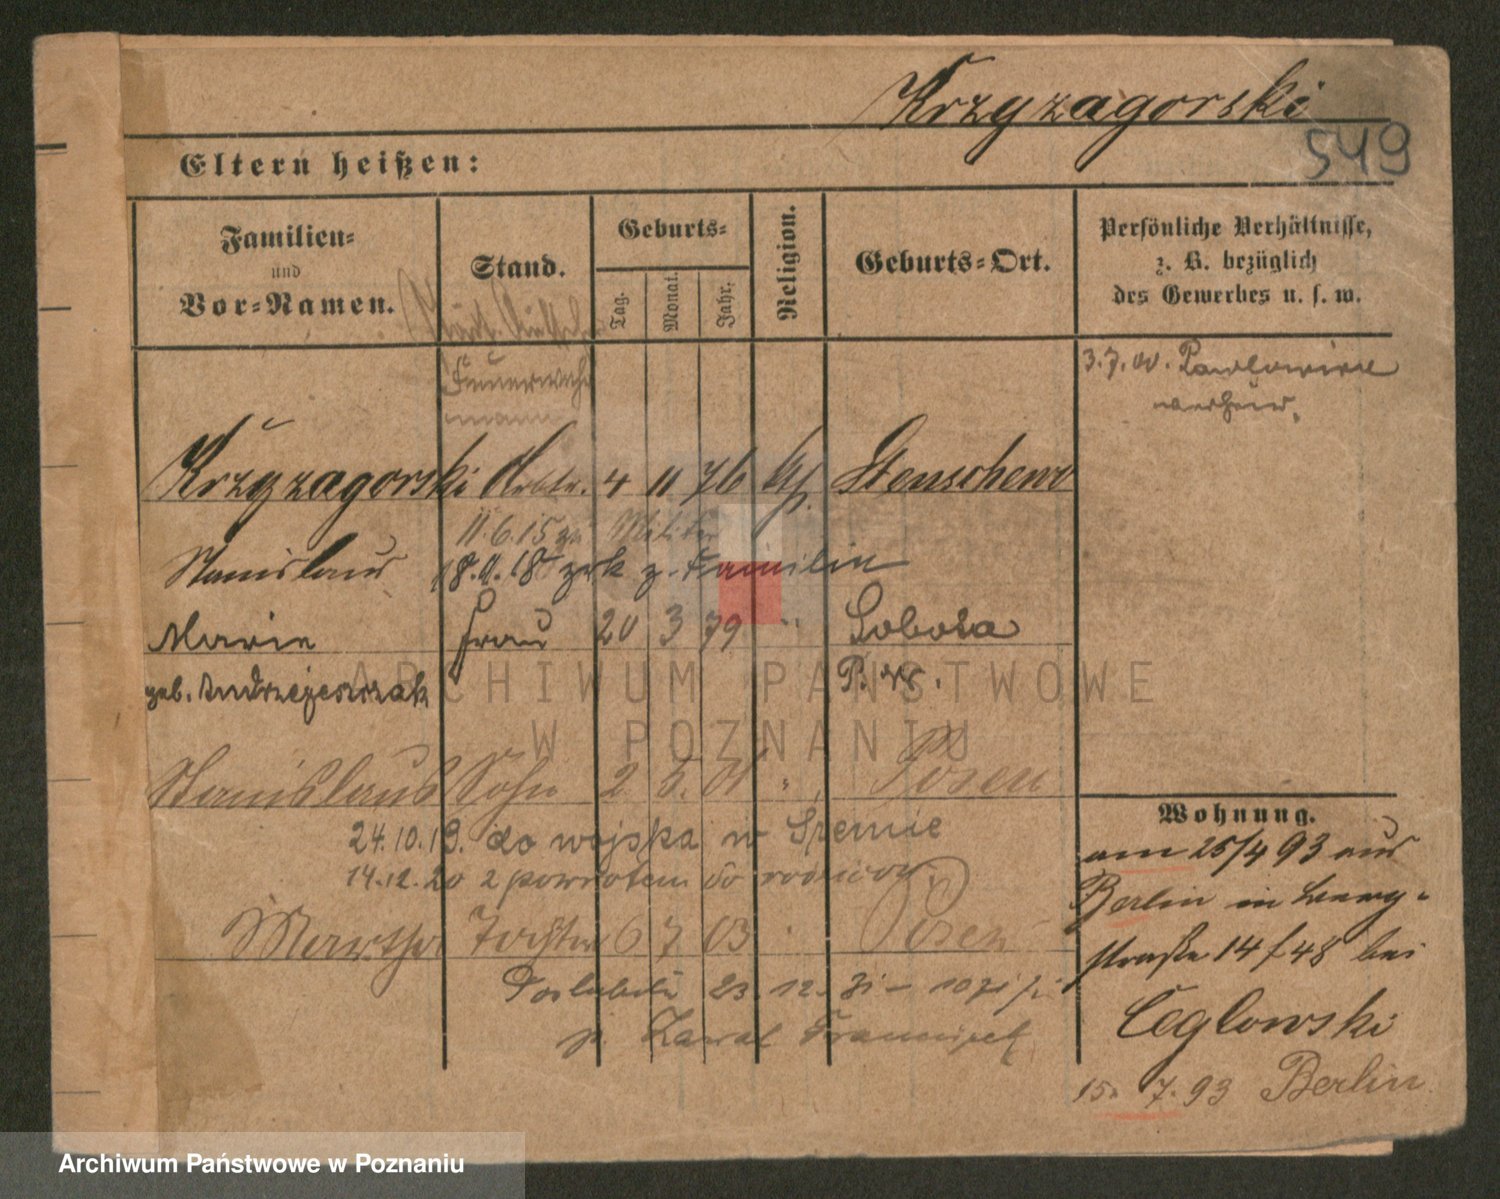 Krzyzagorski
549
Eltern heißen:
Familien=
und
Vor=Namen.
Stand.
Geburts=
Tag.
Monat.
Jahr.
Religion.
Geburts=Ort.
Persönliche Verhältnisse,
z. B. bezüglich
des Gewerbes u. s. w.
Feuerwehr
mann
3.7.00. Pawlowice
verheir.
Krzyzagorski Arbtr. 4 11 76 kath. Stenschewo
11.6.15 zu Militär
Stanislaus 18.11.18 zrk z. Familie
Marie Frau 20 3 79 " Sobota
geb. Andrzejeszczak P. W.
ARCHIWUM PAŃSTWOWE
W POZNANIU
Stanislaus Sohn 2. 5. 01 " Posen
24.10.19. do wojska w Śremie
14.12.20 z powrotem do rodziców
Martha Tochter 6 7 03 Posen
Poślubiła 23.12.31
p. Kawal Franciszek
Wohnung.
am 25/4 93 aus
Berlin in Berg-
straße 14 f 48 bei
Ceglowski
15. 7. 93 Berlin
Archiwum Państwowe w Poznaniu